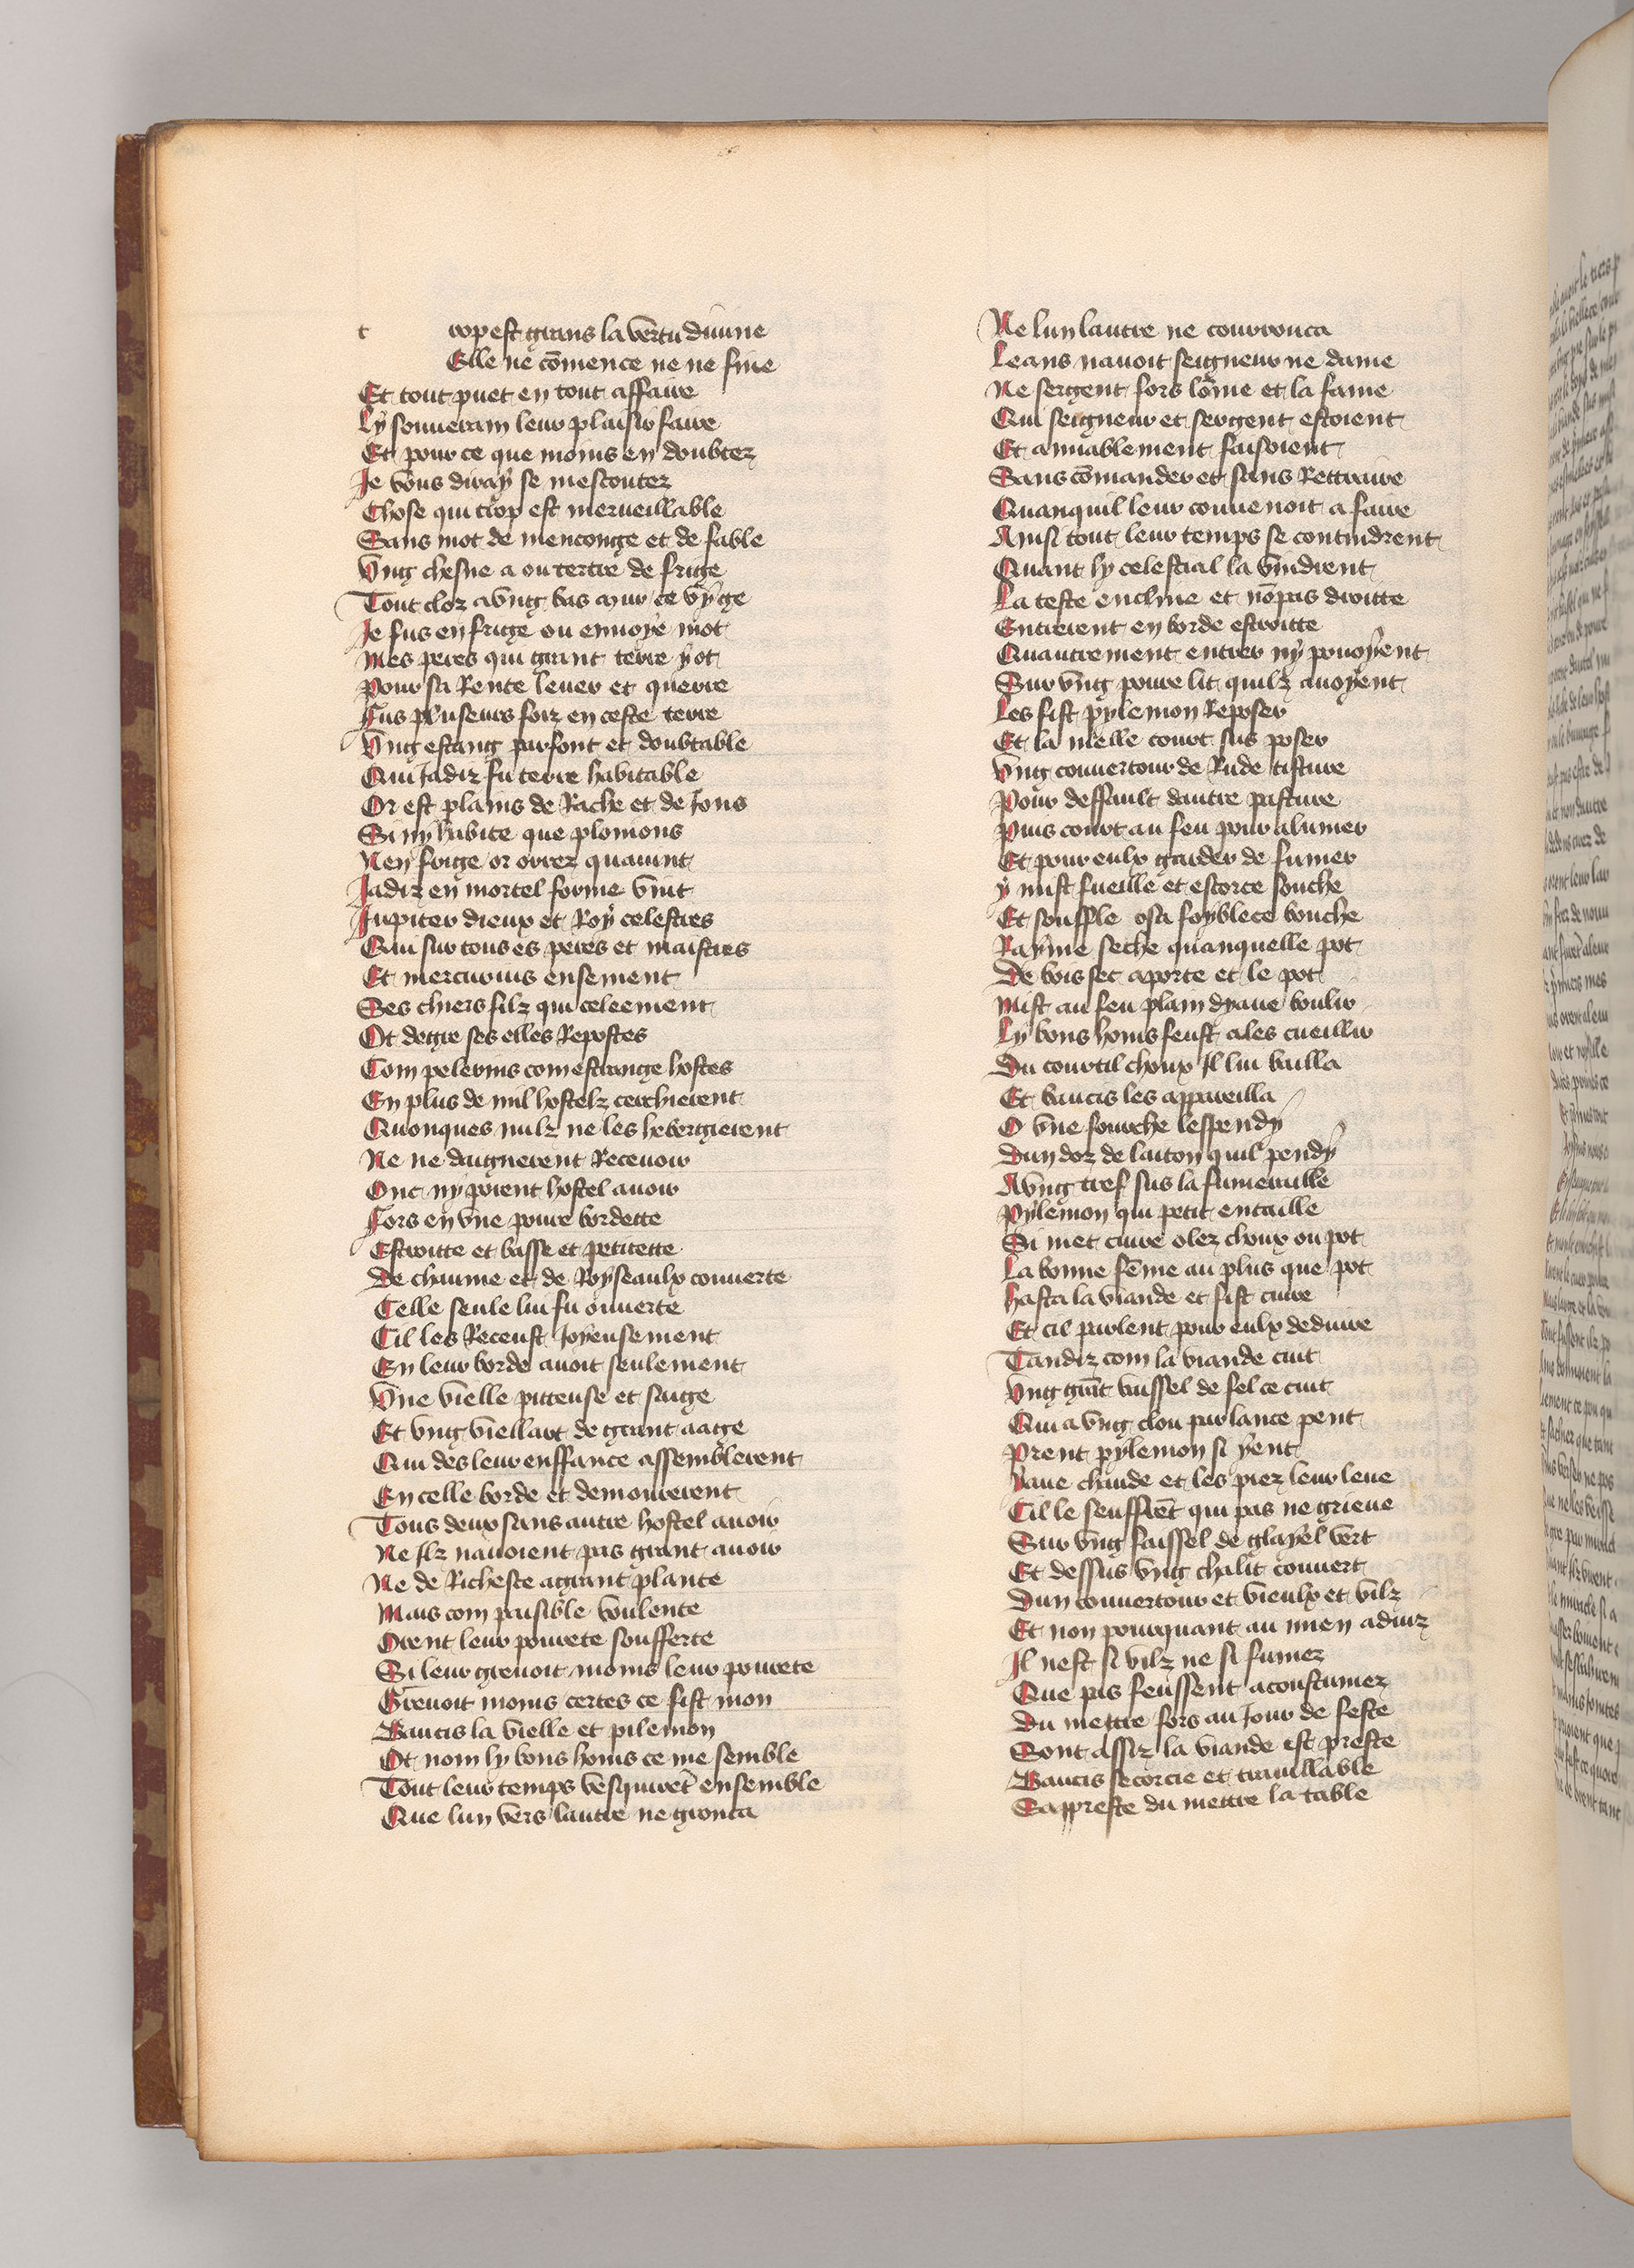 t rop est grans la vertu diuine
Elle ne cõmence ne ne fine
Et tout puet en tout affaire
Ly souuerain leur plaisir faire
Et pour ce que moins en doubtez
Je vous diray se mescoutez
Chose qui trop est merueillable
Sans mot de menconge et de fable
Vng chesne a ou tertre de frige
Tout cloz a vng bas mur ce vy ge
Je fus en frige ou enuoye mot
Mes peres qui grant terre y ot
Pour sa Rente leuer et querre
Fus pluseurs foiz en ceste terre
Vng estang parfont et doubtable
Qui Jadiz fu terre habitable
Or est plains de Rache et de Jons
Si ny habite que plonions
Nen frige or orrez quauint
Jadiz en mortel forme vint
Jupiter dieux et Roy celestres
Qui sur tous es peres et maistres
Et mercurius ensement
Ses chiers filz qui celeement
Ot degre ses elles Repostes
Com pelerins com estrange hostes
En plus de mil hostelz cerchierent
Quonques nulz ne les hebergierent
Ne ne daignerent Receuoir
Onc ny porent hostel auoir
Fors en vne poure bordette
Estroitte et basse et petitette
De chaume et de Royseaulx couuerte
Celle seule lui fu ouuerte
Cil les Receust Joyeusement
En leur borde auoit seulement
Vne vielle piteuse et saige
Et vng viellart de grant aage
Qui des leur enffance assemblerent
En celle borde et demourerent
Tous deux sans autre hostel auoir
Ne ilz nauoient pas grant auoir
Ne de Richeste a grant plante
Mais com paisible voulente
Orent leur pourete soufferte
Si leur greuoit moins leur pourete
Greuoit moins certes ce fist mon
Baucis la vielle et pilemon
Ot nom ly bons homs ce me semble
Tout leur temps vesquirēt ensemble
Que lun vers lautre ne gronca
Ne lun lautre ne courrouca
Leans nauoit seigneur ne dame
Ne sergent fors lõme et la fame
Qui seigneur et sergent estoient
Et amiablement faisoient
Sans cõmander et sans Rettraire
Quanquil leur conuenoit a faire
Ainsi tout leur temps se contindrent
Quant ly celestial la vindrent
La teste encline et nõ pas droitte
Entrerent en borde estroitte
Quautrement entrer ny pouoyent
Sur vng poure lit quilz auoyent
Les fist pylemon Reposer
Et la vielle court sus poser
Vng couuertour de Rude tisture
Pour deffault dautre pasture
Puis court au feu pour alumer
Et pour eulx garder de fumer
y mist fueille et escorce souche
Et souffle o sa foyblece bouche
Rayme seche quanquelle pot
De bois sec aporte et le pot
Mist au feu plain dyaue boulir
Ly bons homs feust ales cueillir
Du courtil choux Il lui bailla
Et baucis les appareilla
O vne fourche lespendy
Dun doz de laiton quil pendy
A vng tref sus la fumeraille
Pylemon qui petit en taille
Si met cuire o lez choux ou pot
La bonne fẽme au plus que pot
hasta la viande et fist cuire
Et cil parlent pour eulx deduire
Tandiz com la viande cuit
Vng grãt vaissel de fel ce cuit
Qui a vng clou par lance pent
Prent pylemon si yent
Yaue chaude et les piez leur leue
Cil le seuffrẽt qui pas ne grieue
Sur vng faissel de glayel vert
Et dessus vng chalit couuert
Dun couuertour et vieulx et vilz
Et non pourquant au mien aduiz
Il nest si vilz ne si fumez
Que pas feussent acoustumez
Du mettre fors au Jour de feste
Sont assiz la viande est preste
Baucis secorcie et trauillable
Sappreste du mettre la table